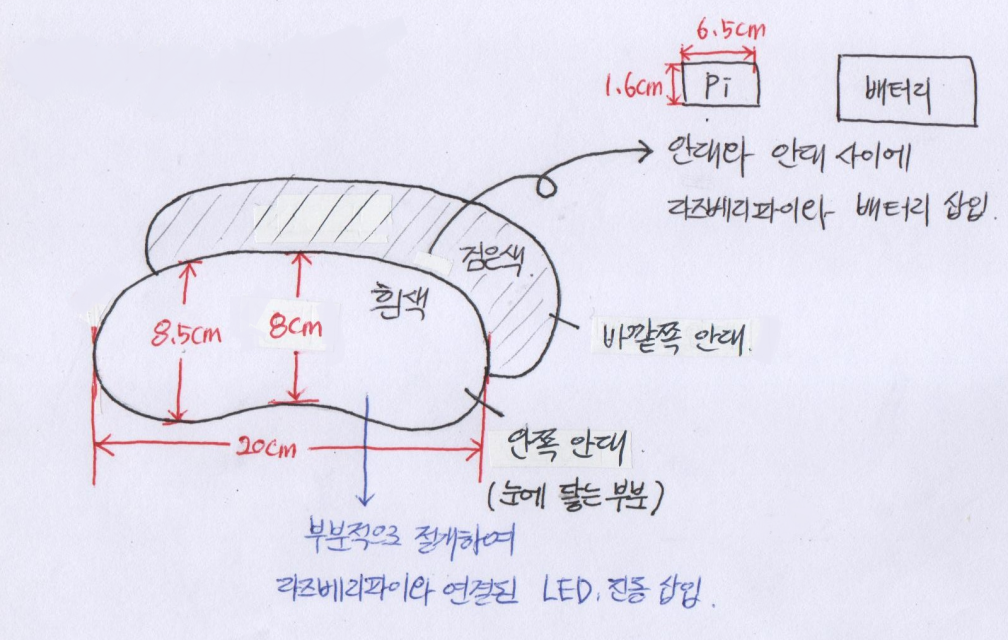 6.5cm
1.6cm
Pi
배터리
안대와 안대 사이에
라즈베리파이와 배터리 삽입.
검은색.
흰색
8.5cm
8cm
바깥쪽 안대.
20cm
안쪽 안대
(눈에 닿는 부분)
부분적으로 절개하여
라즈베리파이와 연결된 LED, 진동 삽입.